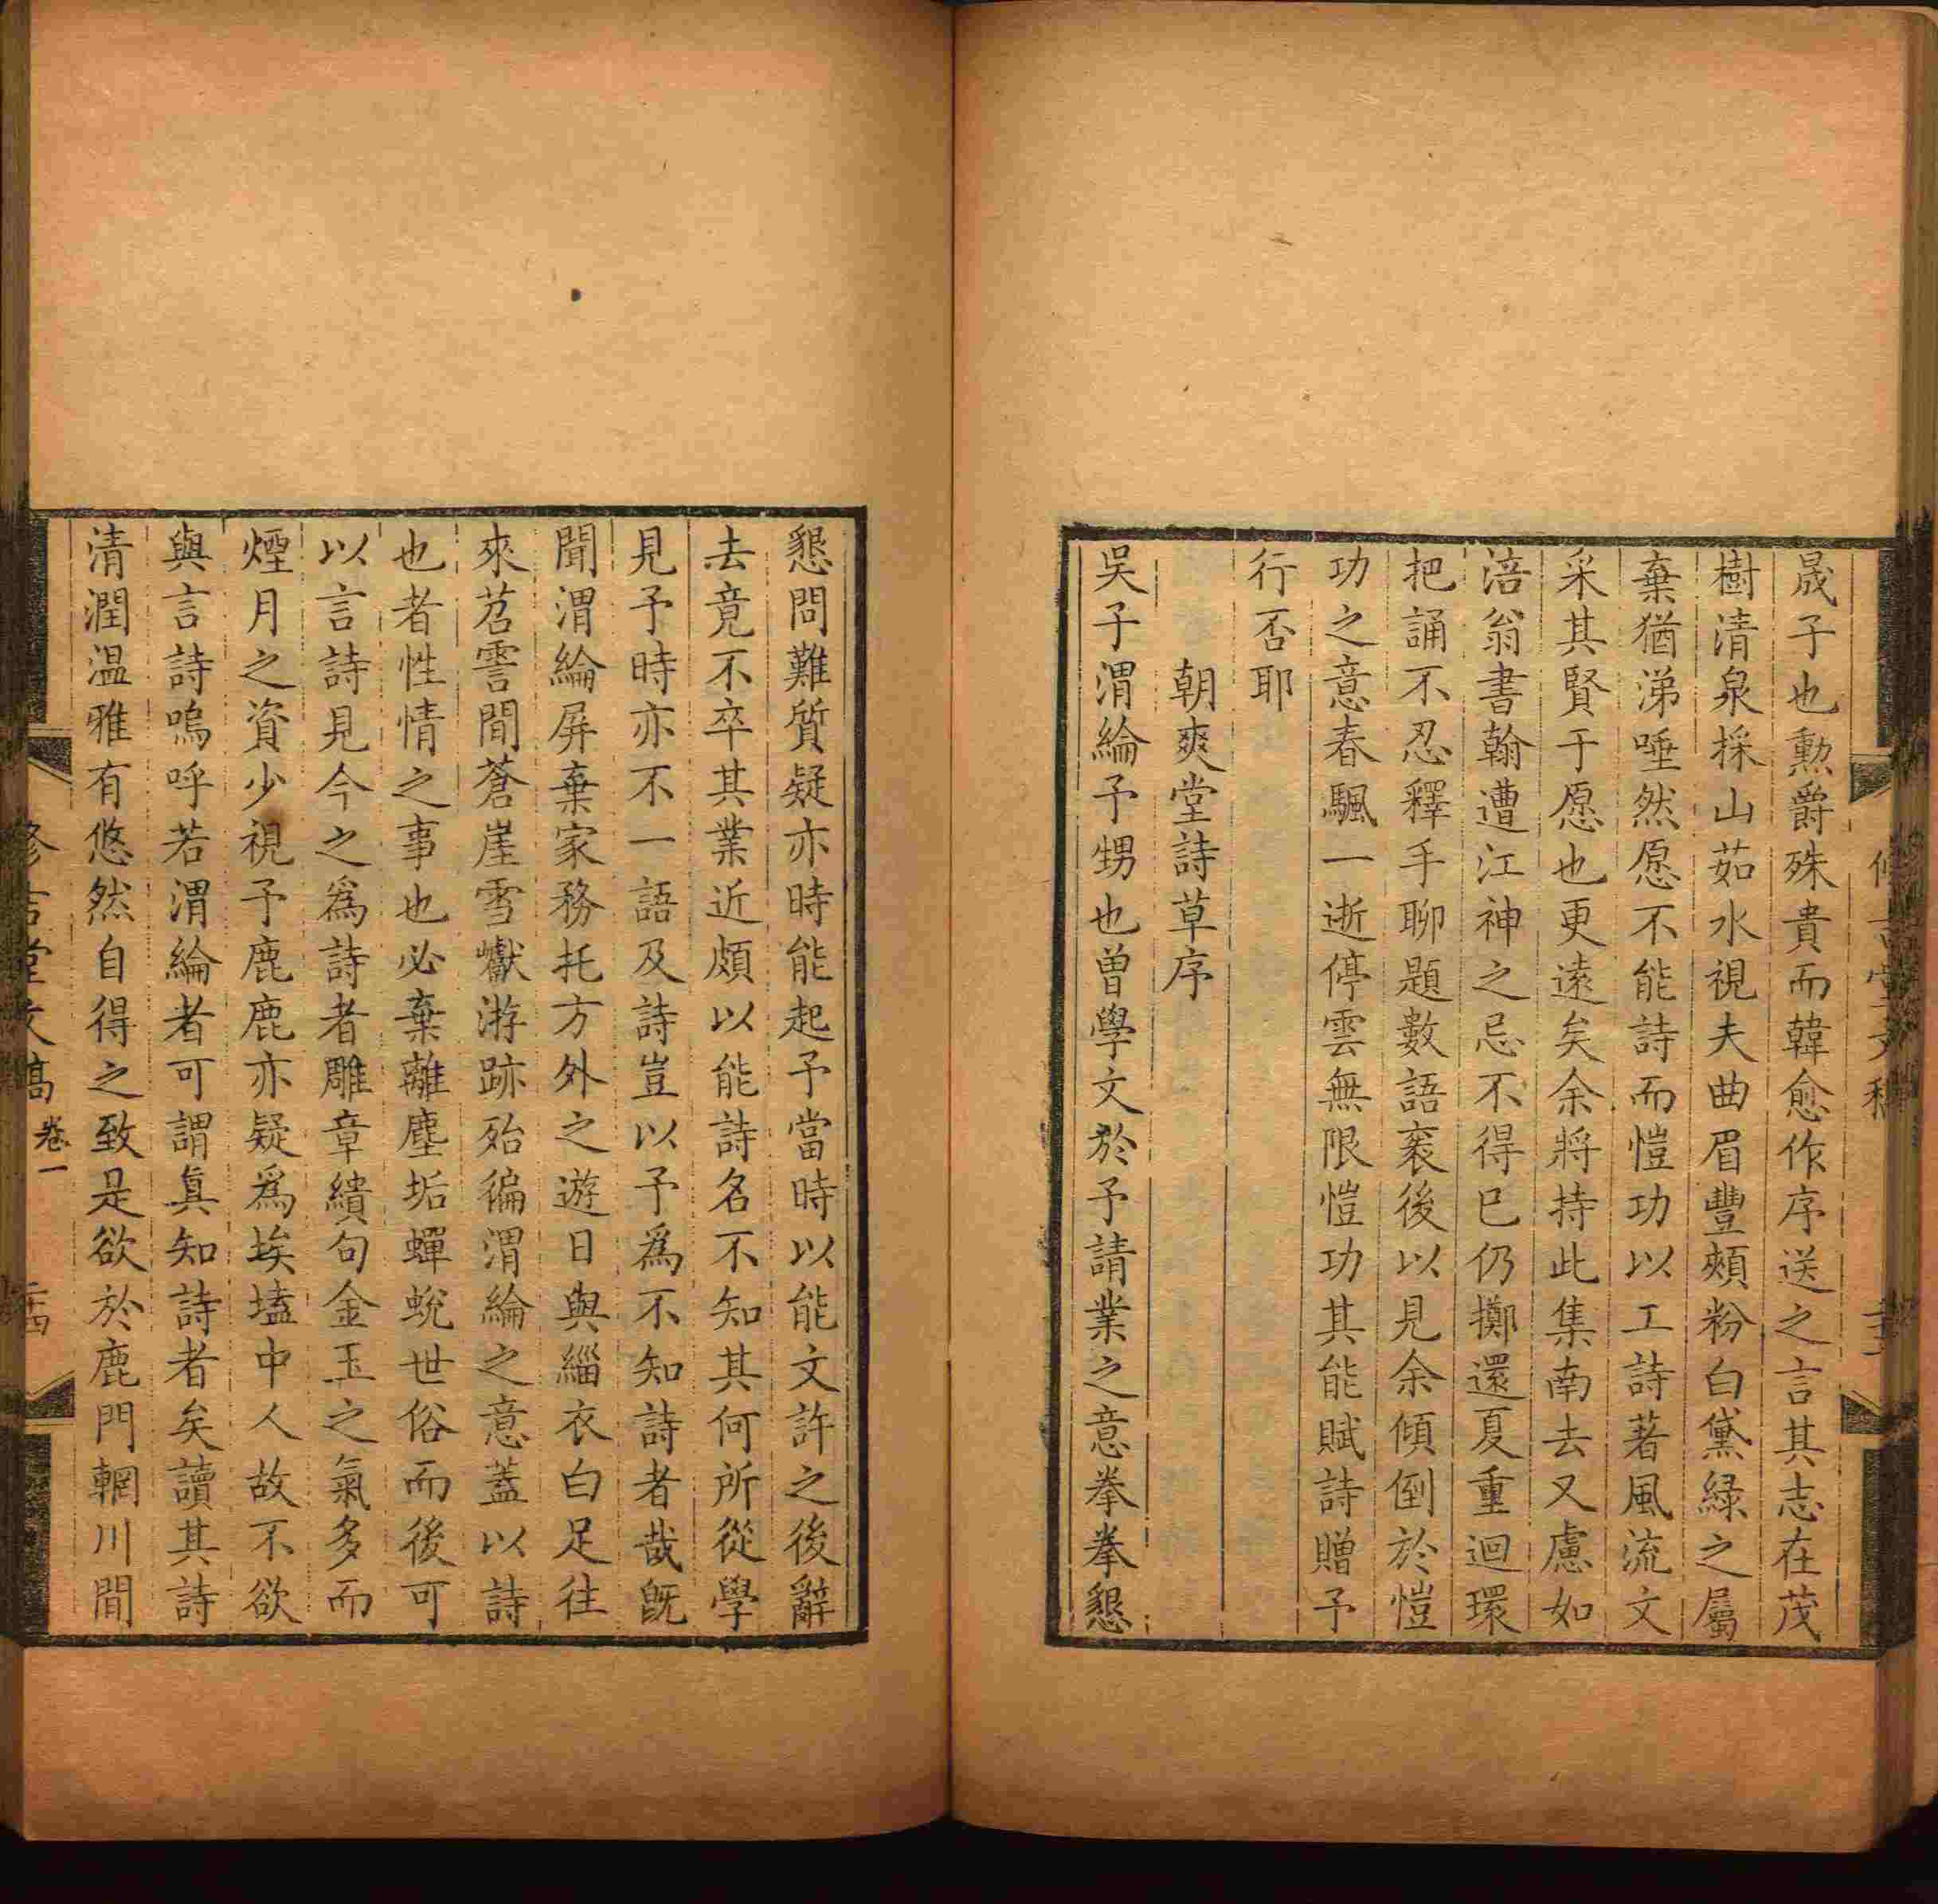 晟子也勳爵殊貴而韓愈作序送之言其志在茂
樹清泉採山茹水視夫曲眉豐頰粉白黛綠之屬
棄猶涕唾然愿不能詩而愷功以工詩著風流文
采其賢于愿也更遠矣余將持此集南去又慮如
涪翁書翰遭江神之忌不得巳仍擲還夏重迴環
把誦不忍釋手聊題數語裘後以見余傾倒於愷
功之意春颿一逝停雲無限愷功其能賦詩贈予
行否耶
朝爽堂詩草序
吳子渭綸予甥也曾學文於予請業之意拳拳懇
懇問難質疑亦時能起予當時以能文許之後辭
去竟不卒其業近頗以能詩名不知其何所從學
見予時亦不一語及詩豈以予爲不知詩者哉旣
聞渭綸屏棄家務托方外之遊日與緇衣白足往
來苕霅間蒼崖雪巘游跡殆徧渭綸之意蓋以詩
也者性情之事也必棄離塵垢蟬蛻世俗而後可
以言詩見今之爲詩者雕章繢句金玉之氣多而
煙月之資少視予鹿鹿亦疑爲埃壒中人故不欲
與言詩嗚呼若渭綸者可謂眞知詩者矣讀其詩
清潤温雅有悠然自得之致是欲於鹿門輞川間
修言堂文高 卷一